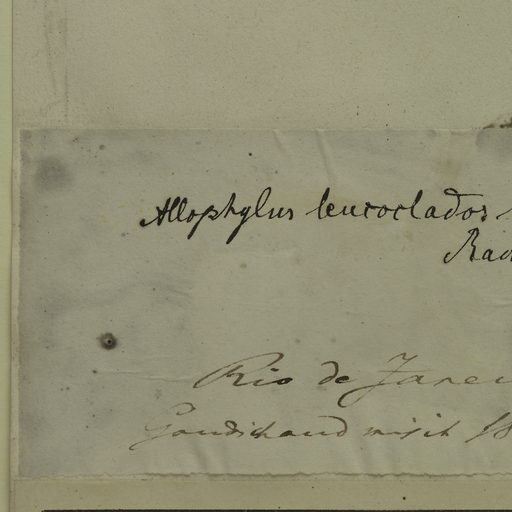 Allophylus leucoclados
Rad
Rio de Janei
Gaudichaud misit 18